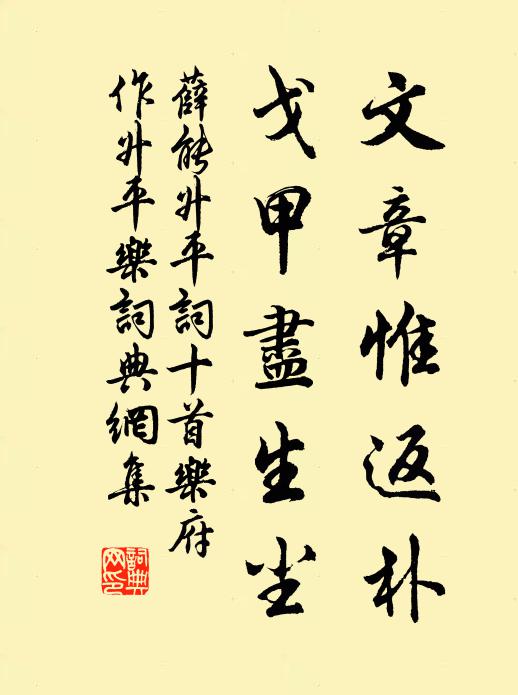 文章惟返朴
戈甲盡生尘
薛能升平詞十首樂府
作升平樂詞典網集
詞典网印